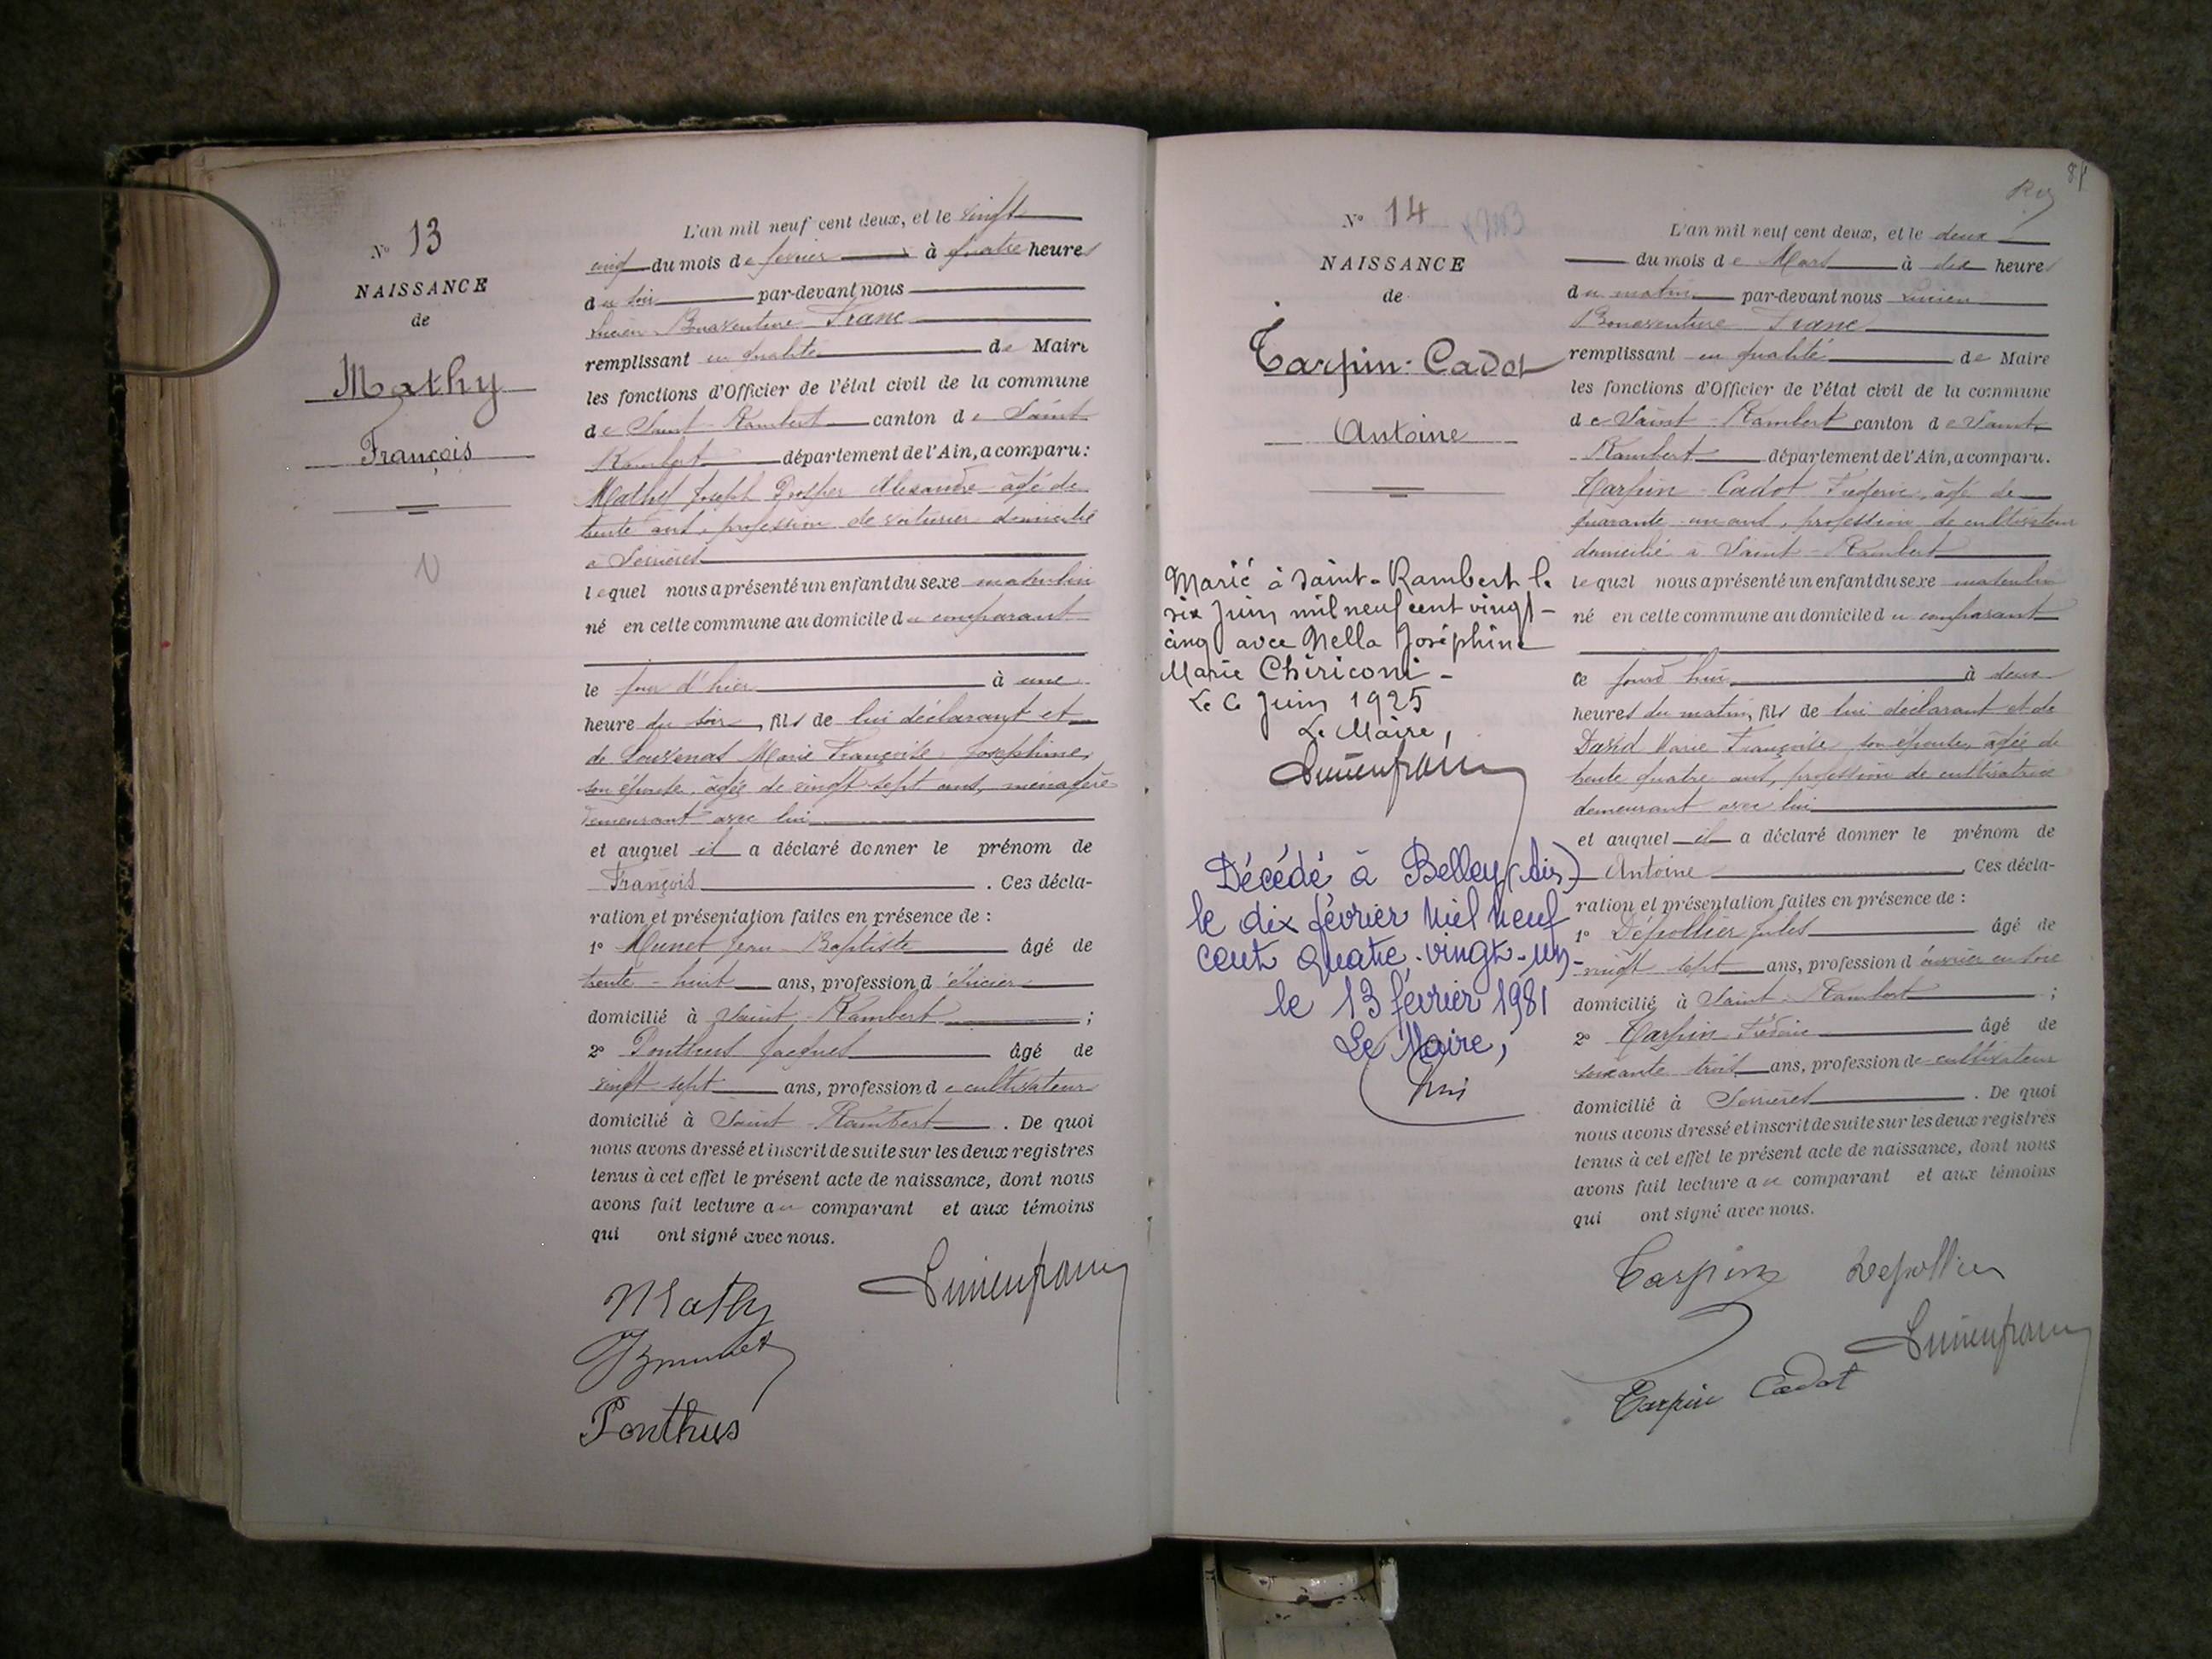 N° 13
NAISSANCE
de
Mathy
François
L'an mil neuf cent deux, et le vingt
cinq du mois de février à quatre heures
du soir par-devant nous
Lucien Bonaventure Franc
remplissant en qualité de Maire
les fonctions d'Officier de l'état civil de la commune
de Saint-Rambert canton de Saint
Rambert département de l'Ain, a comparu:
Mathy Joseph Prosper Alexandre âgé de
trente ans, profession de voiturier domicilié
à Serrières
lequel nous a présenté un enfant du sexe masculin
né en cette commune au domicile du comparant
le jour d'hier à une
heure du soir, fils de lui déclarant et
de Marie Françoise Josephine,
son épouse, âgée de vingt-sept ans, ménagère
demeurant avec lui
et auquel il a déclaré donner le prénom de
François. Ces décla-
ration et présentation faites en présence de :
1° Munet Jean-Baptiste âgé de
trente-huit ans, profession d'épicier
domicilié à Saint-Rambert ;
2° Ponthus Jacques âgé de
vingt sept ans, profession de cultivateur
domicilié à Saint-Rambert. De quoi
nous avons dressé et inscrit de suite sur les deux registres
tenus à cet effet le présent acte de naissance, dont nous
avons fait lecture au comparant et aux témoins
qui ont signé avec nous.
Mathy Lucienfranc
JBmunet
Ponthus
84
N° 14
NAISSANCE
de
Tarpin-Cadot
Antoine
Marié à Saint-Rambert le
six Juin mil neuf cent vingt-
cinq avec Nella Joséphine
Marie Chiriconi -
Le 6 Juin 1925
Le Maire,
Lucienfranc
Décédé à Belley (Ain)
le dix février mil neuf
cent quatre-vingt-un-
le 13 février 1981
Le Maire,
L'an mil neuf cent deux, et le deux
du mois de Mars à dix heures
du matin par-devant nous Lucien
Bonaventure Franc
remplissant en qualité de Maire
les fonctions d'Officier de l'état civil de la commune
de Saint-Rambert canton de Saint-
Rambert département de l'Ain, a comparu.
Tarpin-Cadot Frederic, âgé de
quarante-un ans, profession de cultivateur
domicilié à Saint-Rambert
lequel nous a présenté un enfant du sexe masculin
né en cette commune au domicile du comparant
ce jourd'hui à deux
heures du matin, fils de lui déclarant et de
David Marie Françoise son épouse, âgée de
trente quatre ans, profession de cultivatrice
demeurant avec lui
et auquel il a déclaré donner le prénom de
Antoine. Ces décla-
ration et présentation faites en présence de :
1° Dépollier Jules âgé de
vingt sept ans, profession d'ouvrier en soie
domicilié à Saint-Rambert ;
2° Tarpin âgé de
soixante trois ans, profession de cultivateur
domicilié à Serrières. De quoi
nous avons dressé et inscrit de suite sur les deux registres
tenus à cet effet le présent acte de naissance, dont nous
avons fait lecture au comparant et aux témoins
qui ont signé avec nous.
Tarpin Depollier
Lucienfranc
Tarpin Cadot